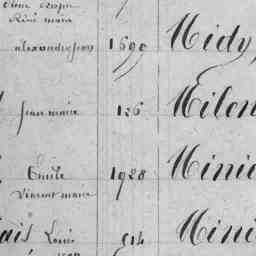 René marie
alexandre jean 1690 Midy,
jean marie 126 Milon
Emile 1928 Mini
Vincent marie
ais Louis 514 Mini